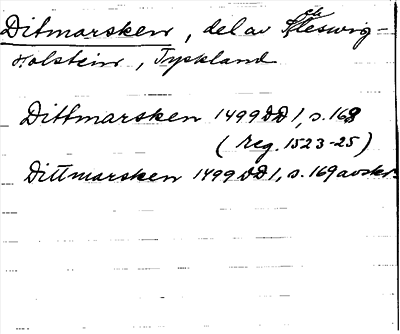 Ditmarsken, del av Sleswig-
Holstein, Tyskland
Dittmarsken 1499 DD1, s. 168
(reg. 1523-25)
Dittmarsken 1499 DD1, s. 169 avskr.